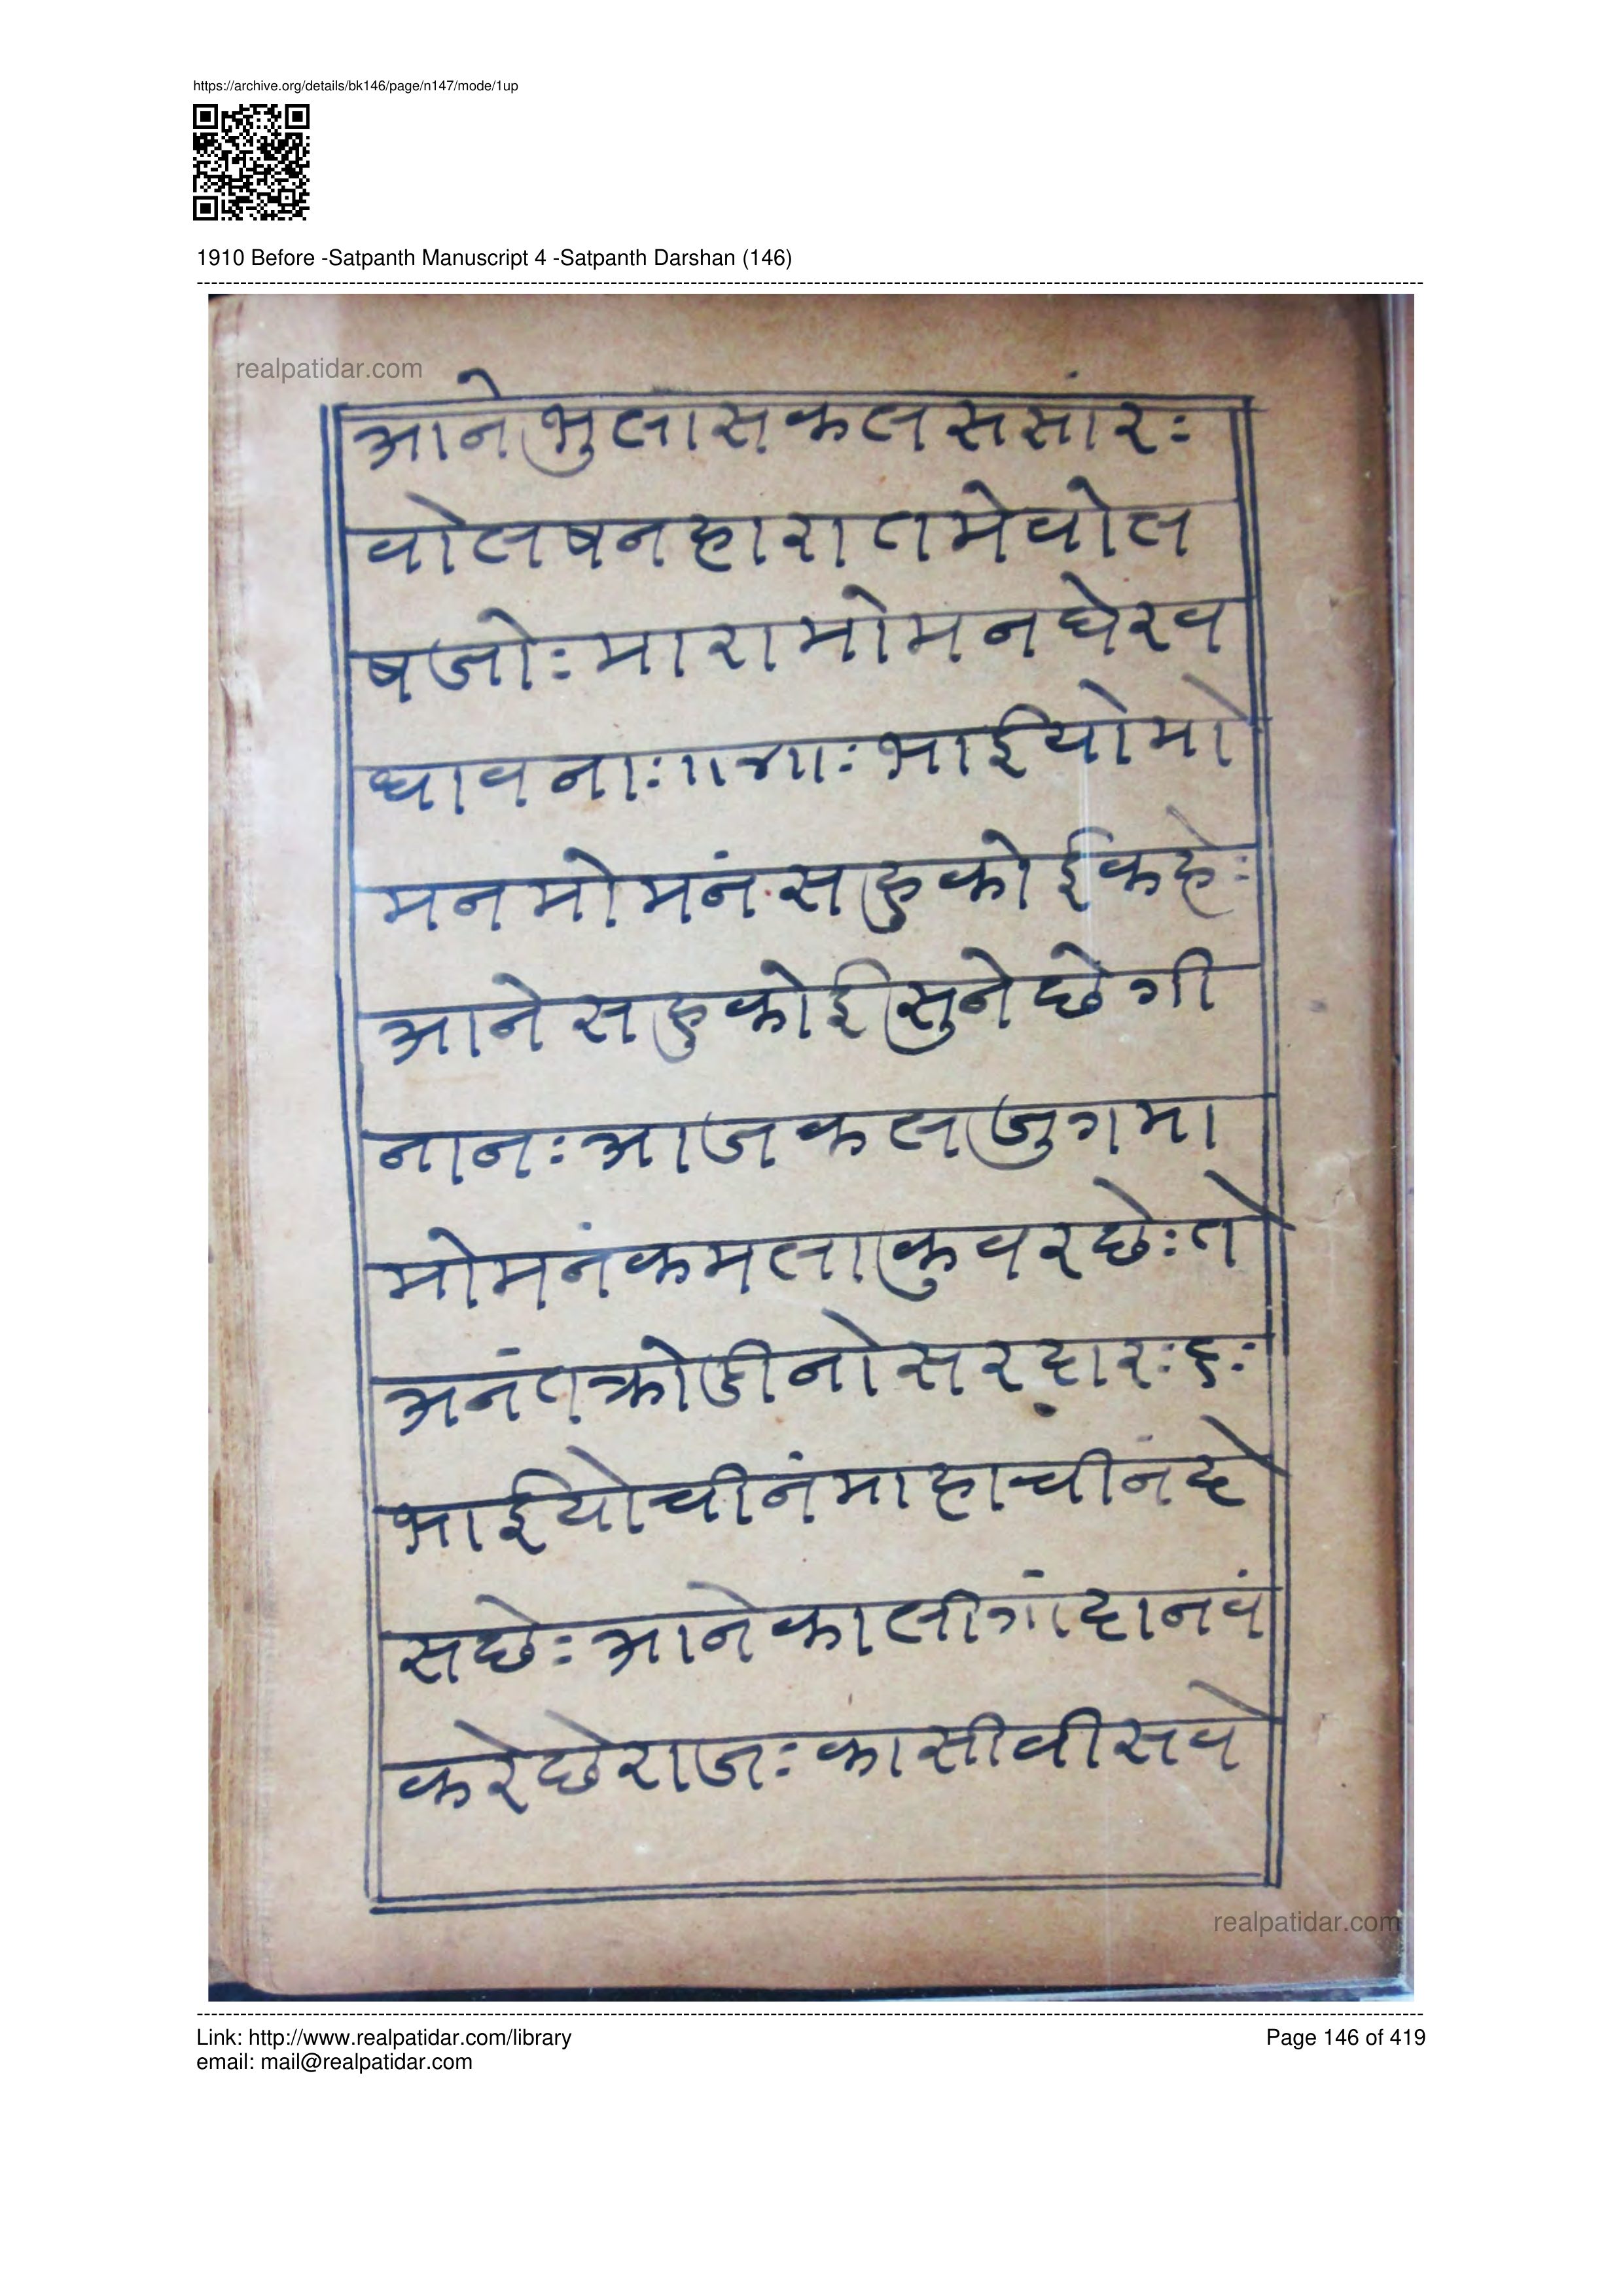 https://archive.org/details/bk146/page/n147/mode/1up
1910 Before -Satpanth Manuscript 4 -Satpanth Darshan (146)
realpatidar.com
आनेभुलासकलससांरः
वोलषनहारातमेवोल
षजोःमारामोमनघेरव
धावनाः॥४॥ःभाईयोमो
मनमोमनंसहुकोईकहेः
आनेसहुकोईसुनेछेगी
नानःआजकलजुगमा
मोमनंकमलाकुवरछेःते
अनंतक्रोडीनोसरदारः६ः
भाईयोचीनंमाहाचीनंदे
सछेःआनेकालीगांदानवं
करेछेराजःकासीवीसवे
realpatidar.com
Link: http://www.realpatidar.com/library
Page 146 of 419
email: mail@realpatidar.com